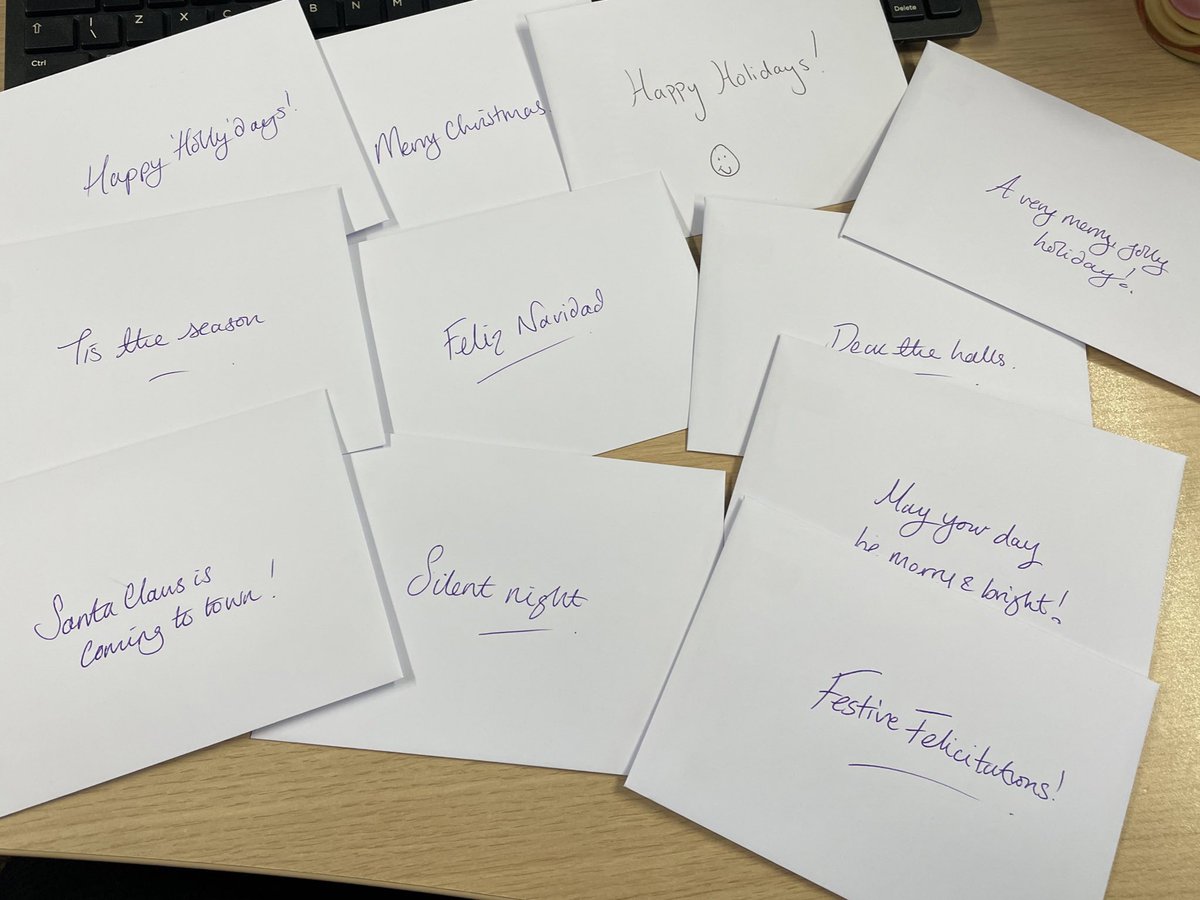 Ctrl
\
Z
X
C
B
N
M
Delete
Happy 'Holly'days!
Merry Christmas
Happy Holidays!
A very merry, jolly
holiday!
'Tis the season
Feliz Navidad
Deck the halls.
May your day
be merry & bright!
Santa Claus is
coming to town!
Silent night
Festive Felicitations!